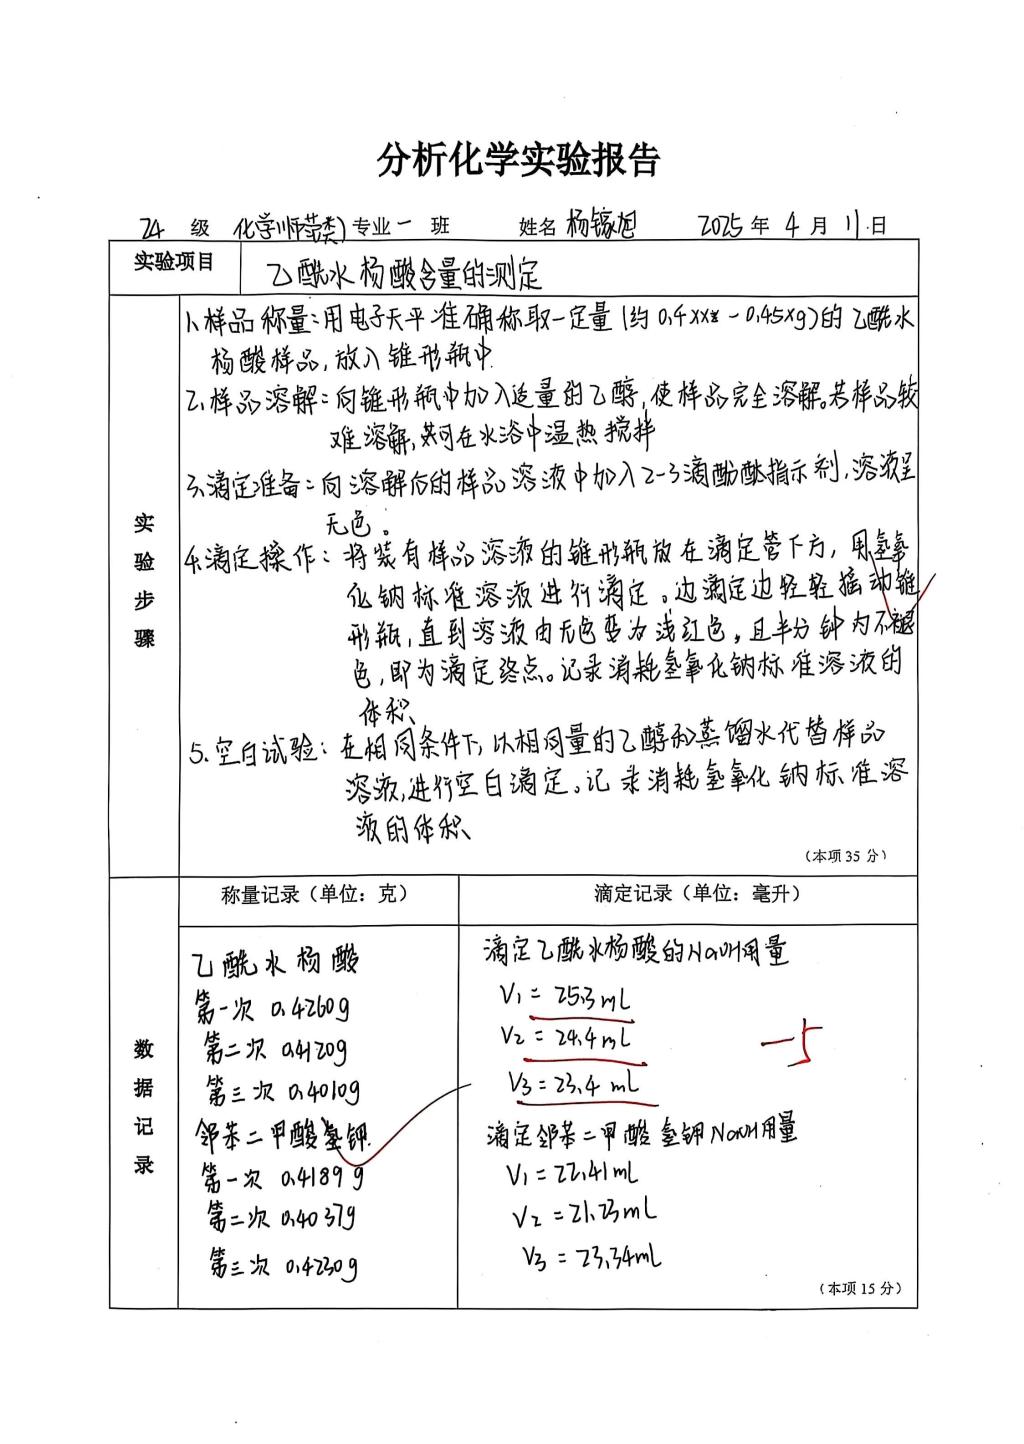 分析化学实验报告
24 级 化学(师范类) 专业 一 班 姓名 杨镓旭 2025 年 4 月 11 日
实验项目 乙酰水杨酸含量的测定
实验步骤
1、样品称量:用电子天平准确称取一定量(约0.4xxx-0.45xg)的乙酰水
杨酸样品,放入锥形瓶中.
2、样品溶解:向锥形瓶中加入适量的乙醇,使样品完全溶解。若样品较
难溶解,可在水浴中温热搅拌
3、滴定准备:向溶解后的样品溶液中加入2-3滴酚酞指示剂,溶液呈
无色。
4.滴定操作:将装有样品溶液的锥形瓶放在滴定管下方,用氢氧
化钠标准溶液进行滴定。边滴定边轻轻摇动锥
形瓶,直到溶液由无色变为浅红色,且半分钟内不褪
色,即为滴定终点。记录消耗氢氧化钠标准溶液的
体积
5.空白试验:在相同条件下,以相同量的乙醇和蒸馏水代替样品
溶液,进行空白滴定。记录消耗氢氧化钠标准溶
液的体积
(本项35分)
数据记录
称量记录(单位:克)
乙酰水杨酸
第一次 0.4260g
第二次 0.4120g
第三次 0.4010g
邻苯二甲酸氢钾.
第一次 0.4189g
第二次 0.4037g
第三次 0.4230g
滴定记录(单位:毫升)
滴定乙酰水杨酸的NaOH用量
V1=25.3mL
V2=24.4mL
V3=23.4mL
-5
滴定邻苯二甲酸氢钾NaOH用量
V1=22.41mL
V2=21.23mL
V3=23.34mL
(本项15分)